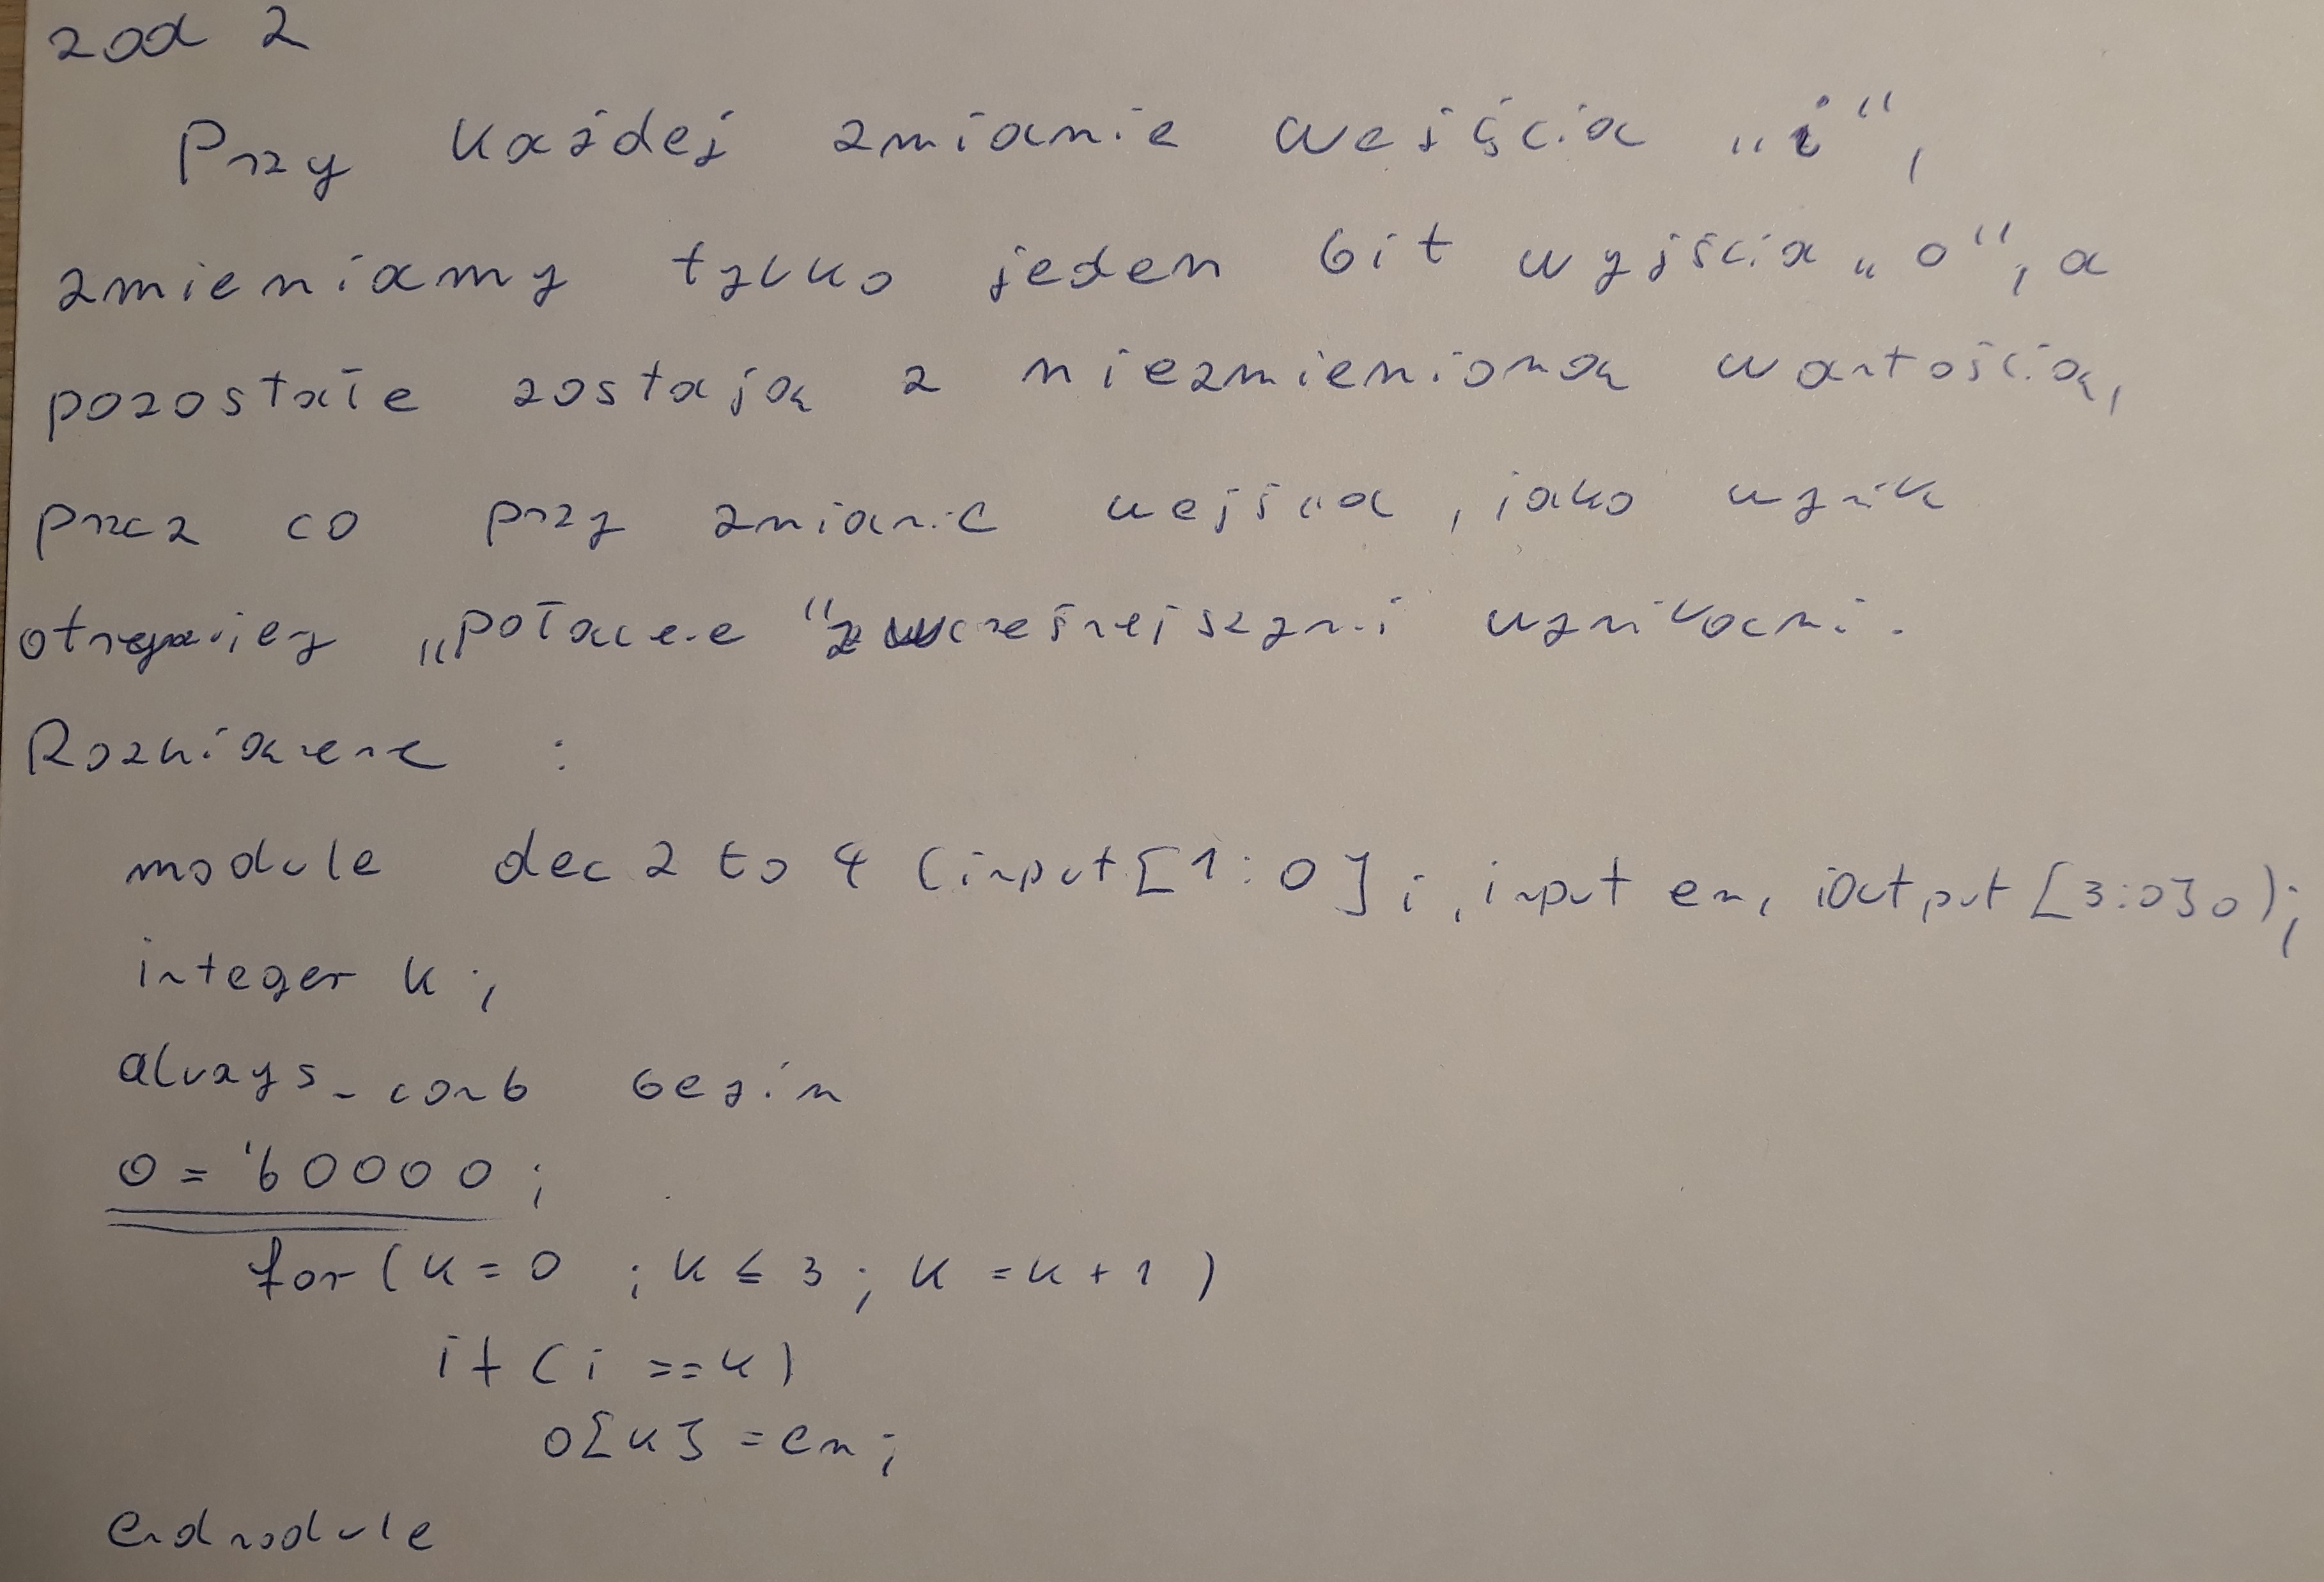 zad 2
Przy każdej zmianie wejścia „i“,
zmieniamy tylko jeden bit wyjścia „o“, a
pozostałe zostają z niezmienioną wartością,
przez co przy zmianie wejścia, jako wynik
otrzymujemy „połączenie“ z wcześniejszymi wynikami.
Rozwiązanie :
module dec2to4 (input[1:0] i, input en, output [3:0] o);
integer k;
always_comb begin
o = 'b0000;
for(k=0 ; k ≤ 3; k = k+1)
if (i == k)
o[k] = en;
endmodule